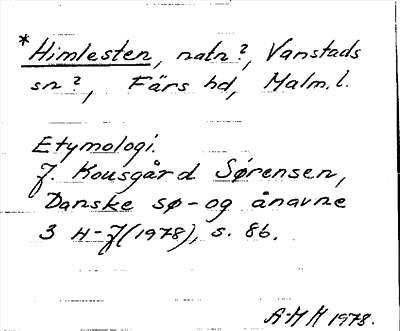 *Himlesten, natn?, Vanstads
sn?, Färs hd, Malm. l.
Etymologi.
J. Kousgård Sørensen,
Danske sø- og ånavne
3 H-J (1978), s. 86.
A-M H 1978.